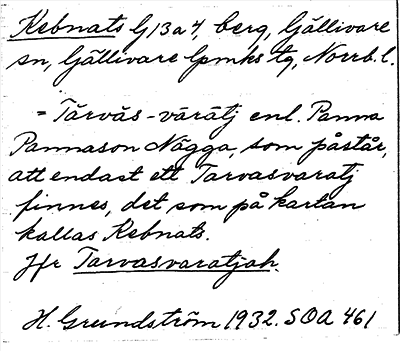 Kebnats G 13 a 4, berg, Gällivare
sn, Gällivare lpmks tg, Norrb. l.
= Tărvăs-vārātj enl. Panna
Pannason Nägga, som påstår,
att endast ett Tarvasvaratj
finnes, det som på kartan
kallas Kebnats.
Jfr Tarvasvaratjah.
H. Grundström 1932. SOA 461